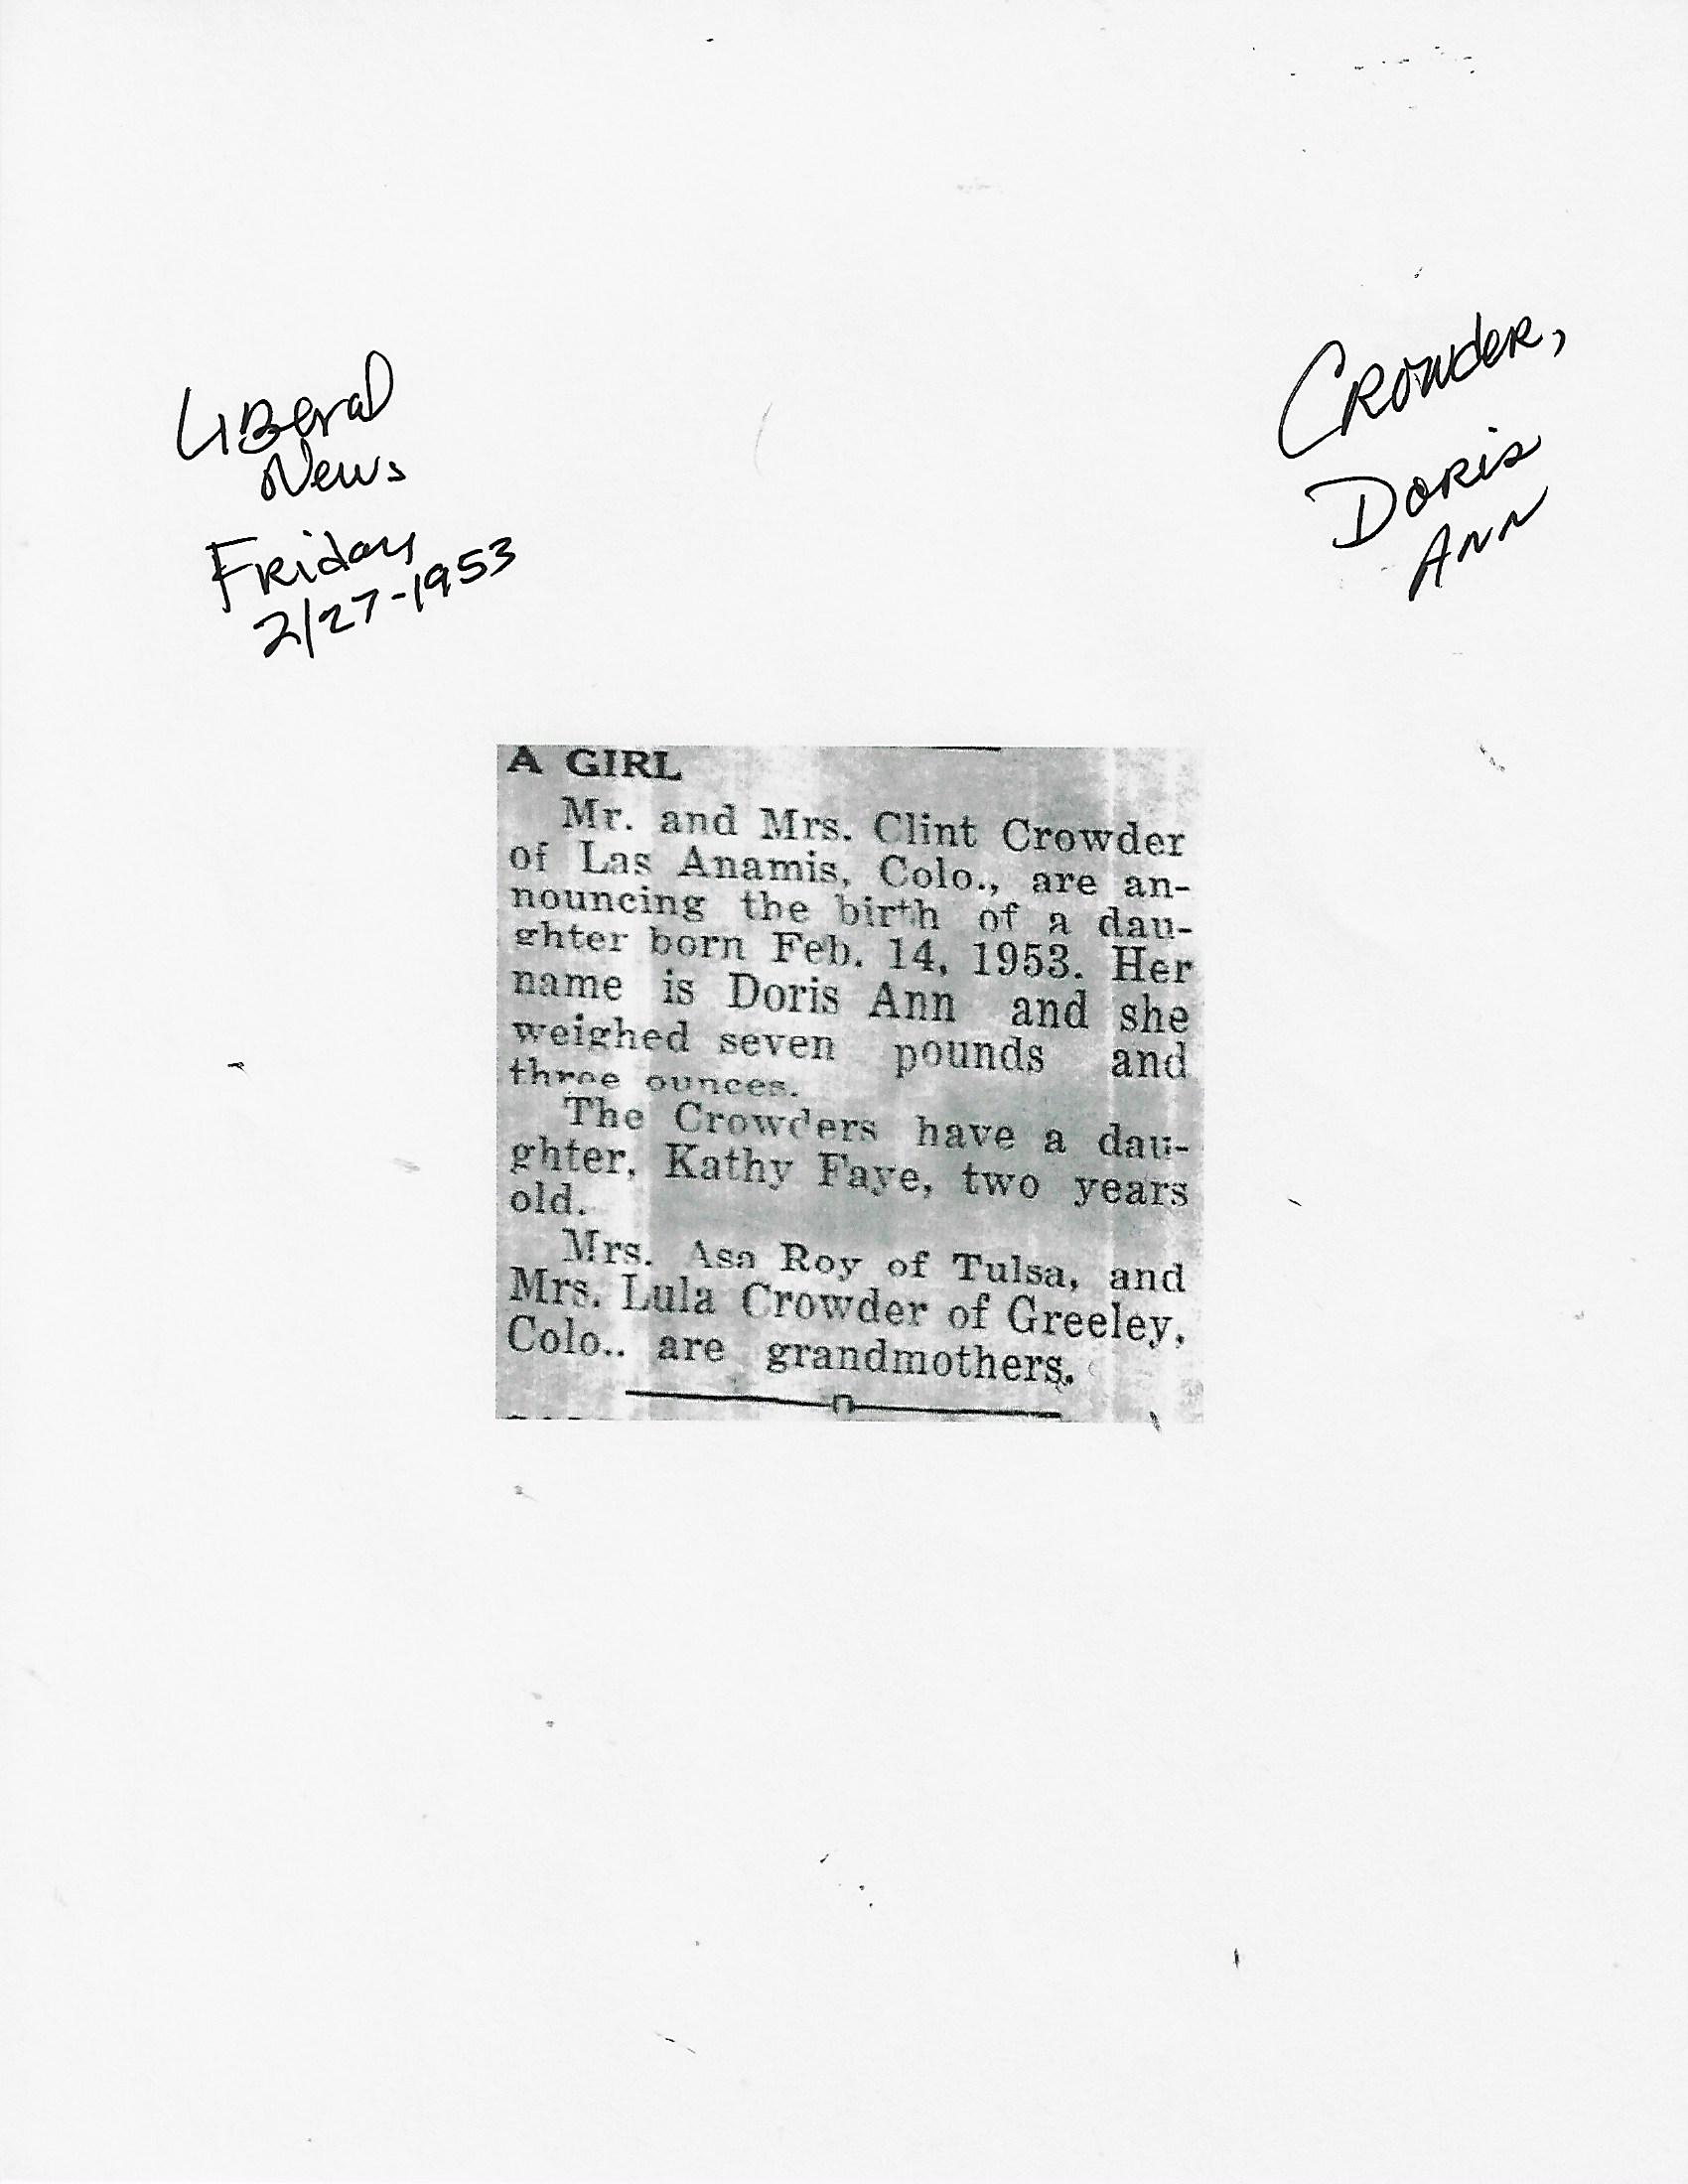 Liberal
News
Friday
2/27-1953
Crowder,
Doris
Ann
A GIRL
Mr. and Mrs. Clint Crowder
of Las Anamis, Colo., are an-
nouncing the birth of a dau-
ghter born Feb. 14, 1953. Her
name is Doris Ann and she
weighed seven pounds and
three ounces.
The Crowders have a dau-
ghter, Kathy Faye, two years
old.
Mrs. Asa Roy of Tulsa, and
Mrs. Lula Crowder of Greeley,
Colo.. are grandmothers.